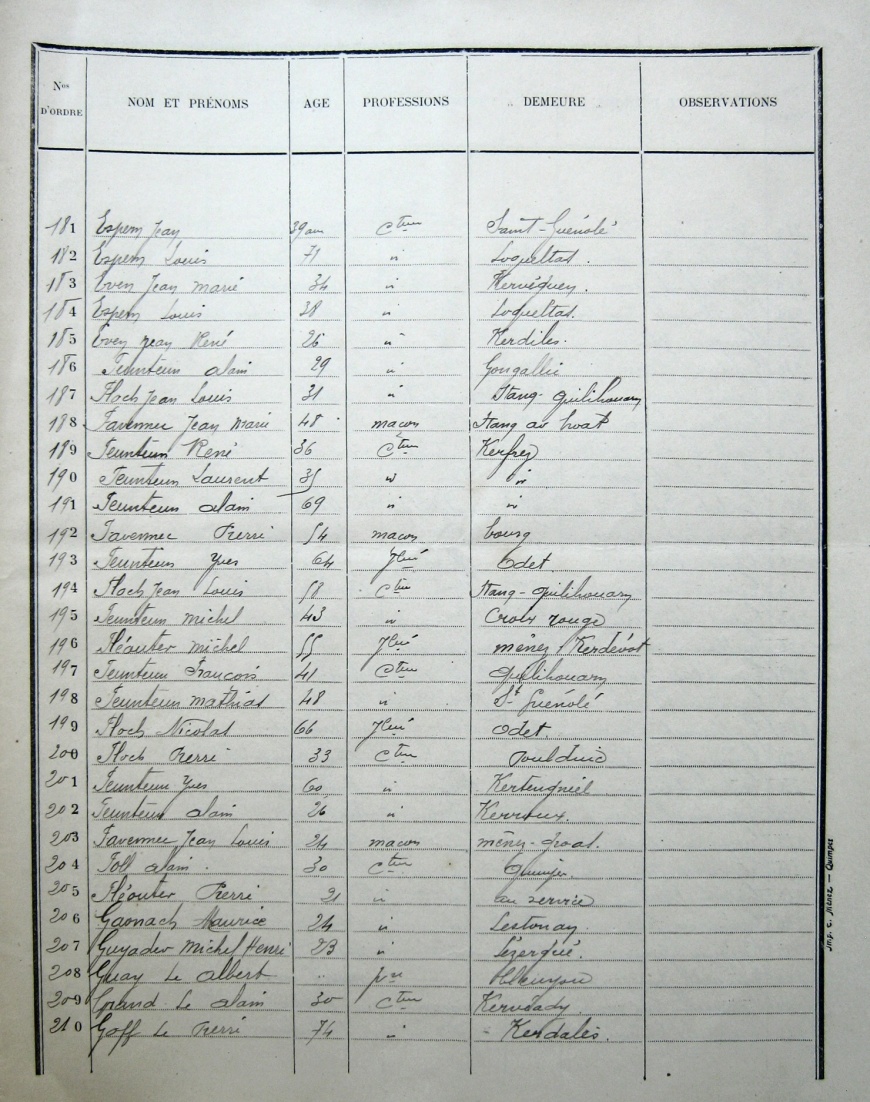 Nos D'ORDRE NOM ET PRÉNOMS AGE PROFESSIONS DEMEURE OBSERVATIONS
181 Espern Jean 39 ans Cteur Saint-Guénolé
182 Espern Louis 71 " Loqueltas.
183 Even Jean Marie 34 " Kervéguen.
184 Espern Louis 38 " Loqueltas.
185 Even Jean René 26 " Kerdiles.
186 Feunteun alain 29 " Gongallic
187 Floch Jean Louis 31 " Stang-quilihouarn
188 Favennec Jean Marie 48 macon Stang ar hoat
189 Feunteun René 36 Cteur Kerfrez
190 Feunteun Laurent 35 " "
191 Feunteun alain 69 " "
192 Favennec Pierre 54 macon bourg
193 Feunteun Yves 64 Jlier Odet
194 Floch Jean Louis 58 Cteur Stang-quilihouarn
195 Feunteun michel 43 " Croix rouge
196 Fléouter michel 55 Jlier ménez Kerdévot
197 Feunteun François 41 Cteur quilihouarn
198 Feunteun mathias 48 " St Guénolé
199 Floch Nicolas 66 Jlier Odet.
200 Floch Pierre 33 Cteur Poulduic
201 Feunteun Yves 60 "
202 Feunteun alain 26 " Kerroux.
203 Favennec Jean Louis 24 macon mény-groas.
204 Foll alain. 30 Cteur
205 Fléouter Pierre 21 " au service
206 Gaonach Maurice 24 " Lestonan
207 Guyader Michel Henri 23 " Lézergué.
208 Guay Le Albert "
209 Grand Le alain 30 Cteur
210 Goff Le Pierre 74 " Kerdalès.
Imp. C. Ménez — Quimper